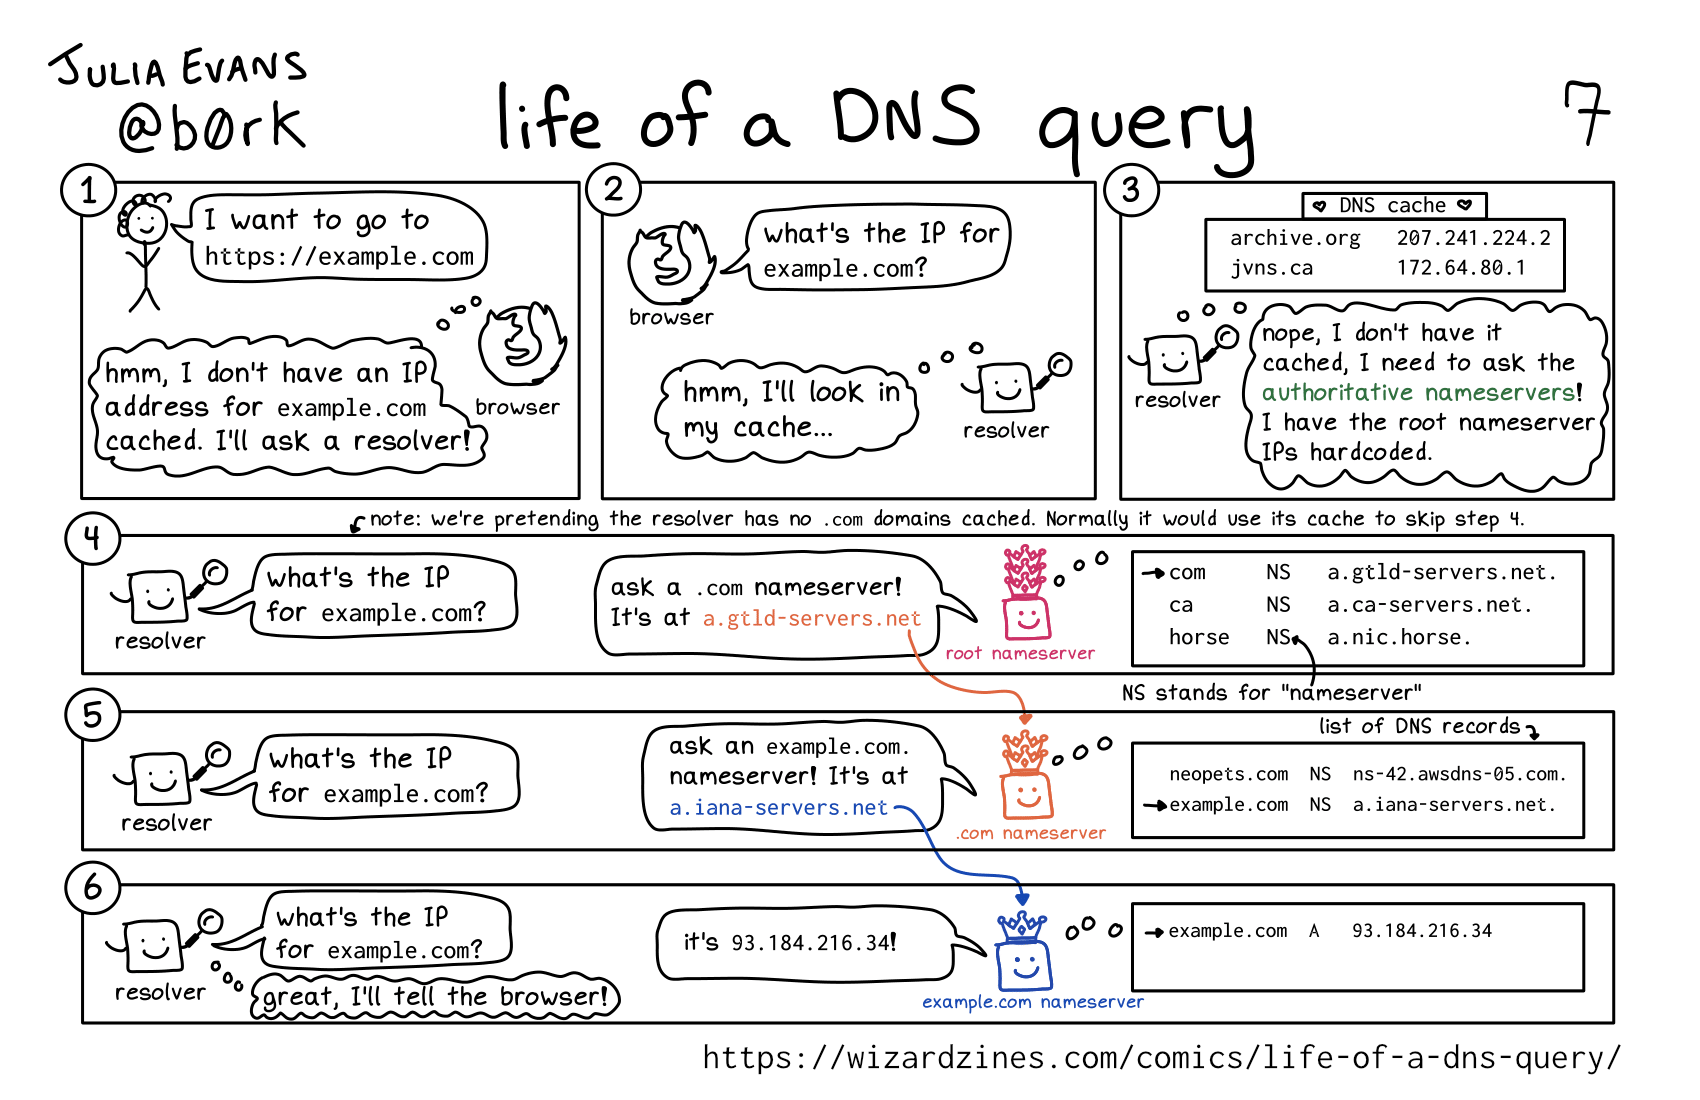 JULIA EVANS
@b0rk
life of a DNS query
7
1
I want to go to
https://example.com
hmm, I don't have an IP
address for example.com
cached. I'll ask a resolver!
browser
2
what's the IP for
example.com?
browser
hmm, I'll look in
my cache...
resolver
3
♥ DNS cache ♥
archive.org 207.241.224.2
jvns.ca 172.64.80.1
resolver
nope, I don't have it
cached, I need to ask the
authoritative nameservers!
I have the root nameserver
IPs hardcoded.
note: we're pretending the resolver has no .com domains cached. Normally it would use its cache to skip step 4.
4
resolver
what's the IP
for example.com?
ask a .com nameserver!
It's at a.gtld-servers.net
root nameserver
com NS a.gtld-servers.net.
ca NS a.ca-servers.net.
horse NS a.nic.horse.
NS stands for "nameserver"
5
resolver
what's the IP
for example.com?
ask an example.com.
nameserver! It's at
a.iana-servers.net
.com nameserver
list of DNS records
neopets.com NS ns-42.awsdns-05.com.
example.com NS a.iana-servers.net.
6
resolver
what's the IP
for example.com?
great, I'll tell the browser!
it's 93.184.216.34!
example.com nameserver
example.com A 93.184.216.34
https://wizardzines.com/comics/life-of-a-dns-query/